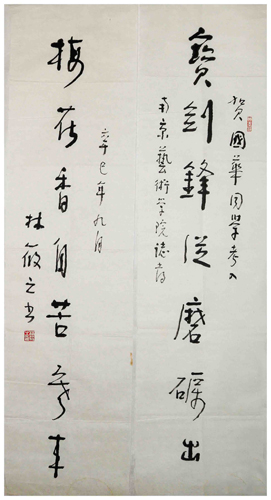 賀國華同學考入
寶劍鋒從磨礪出
南京藝術學院誌喜
辛巳年九月
梅花香自苦寒来
林筱之书